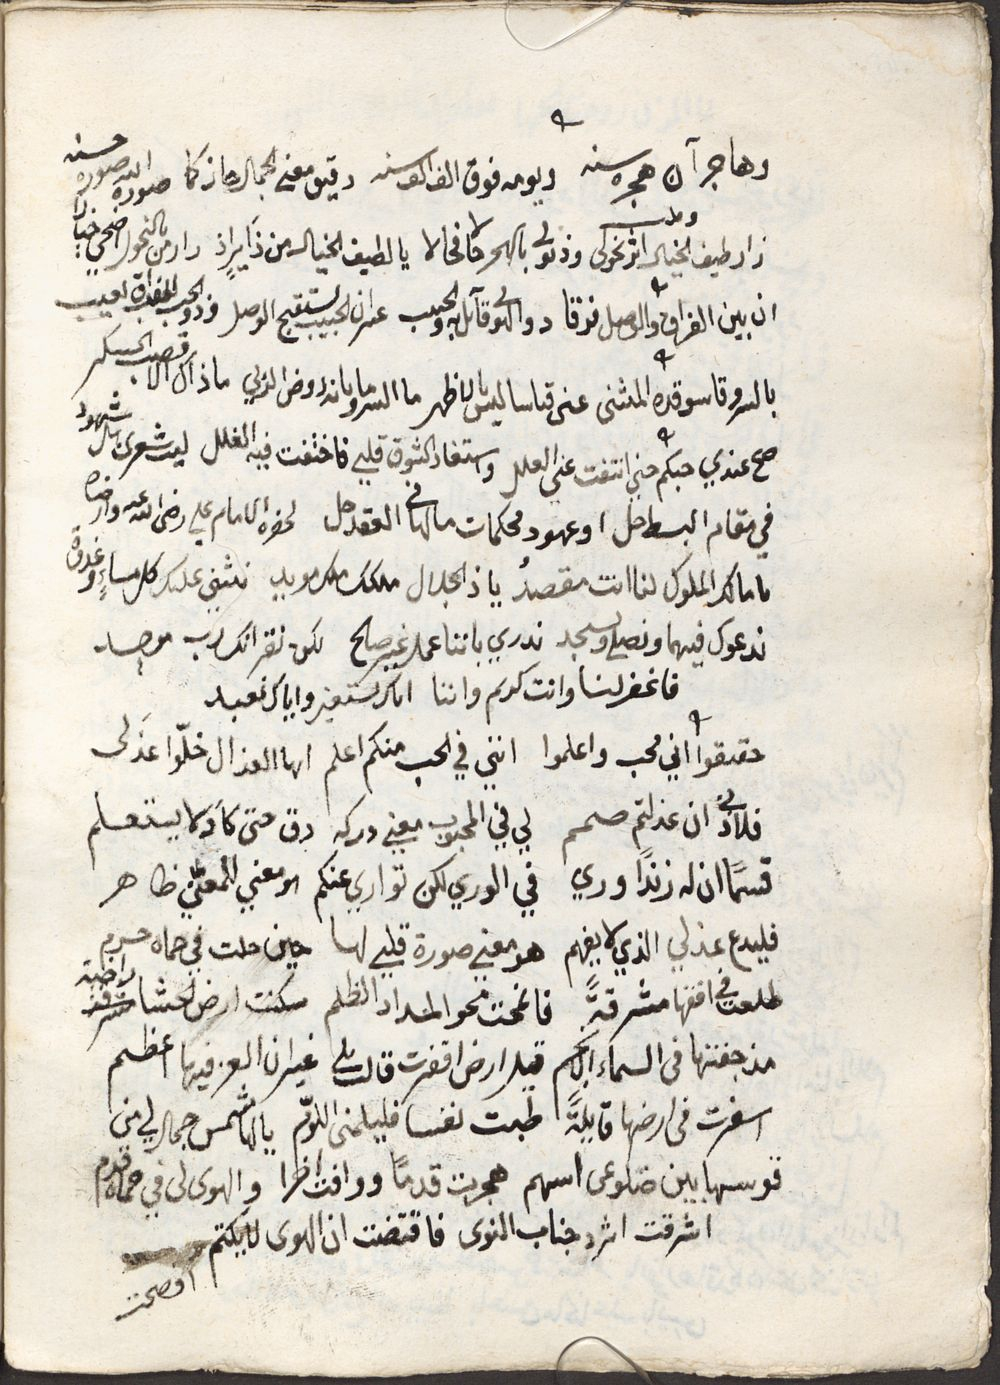 وهاجر آن هجره سنه ويومه فوق الف الف سنه رقيق معنى الجمال حاز كما صوره الله صورة حسنه
زار طيف الخيال اثر نحولي وذلولي بالهجر حالا فحالا يا لطيف الخيال من زاير اذ زار من بالنحول اضحى خيالا
ان بين الفراق والوصل فرقا ذو الهوى قايل به والمحب غير ان الحبيب يستقبح الوصل وذو الحب للفراق يعيب
بالسرو قاسو قده المنثني عندي قياسا ليس بالظهر ما السرو ما باند روض الربي ما ذاك الا قصب السكر
صح عندي حبكم حين انتفت عني العلل واستفاد الشوق قلبي فاختفت فيه الغلل ليت شعري هل شهود
في مقام البسط حل او عهود محكمات ما لها في العقد حل لحضره الامام علي رضي الله عنه وارضاه
يا مالك الملوك لنا انت مقصد يا ذا الجلال ملكك ملك مويد نثني عليك كل مساء وغدوة
ندعوك فيهما ونصلي ونسجد ندري باننا عمل غير صالح لكن نقر انك رب موحد
فاغفر لنا وانت كريم واننا اياك نستعين واياك نعبد
حققوا اني محب واعلموا انني في الحب منكم اعلم ايها العذال خلّوا عذلي
فلاذني ان عذلتم صمم لي في المحبوب معنى دركه دق حتى كاد لا يستعلم
قسمًا ان له زندًا وري في الوري لكن تواري عنكم هو معنى للمعنّى ظاهر
فليدع عذلي الذي لا يفهم هو معني صورة قلبي لها حين حلت في حماه حرم
طلعت في افقها مشرقةً فانمحت نحو المداد الظلم سكنت ارض الحشا راضية
مذ جفتها في السماء الانجم قيل ارض اقفرت قالت بلي غير ان العز فيها اعظم
اسفرت في ارضها قايلةً طبت نفسا فليلمني اللوّم يا لها شمس جمال لي من
قوسها بين ضلوعي اسهم هجرت قدمًا ووافت اخرا والهوى لي في حماه قدم
اشرقت اثر جناب النوى فاقتضت ان الهوى لا يكتم
افصحت